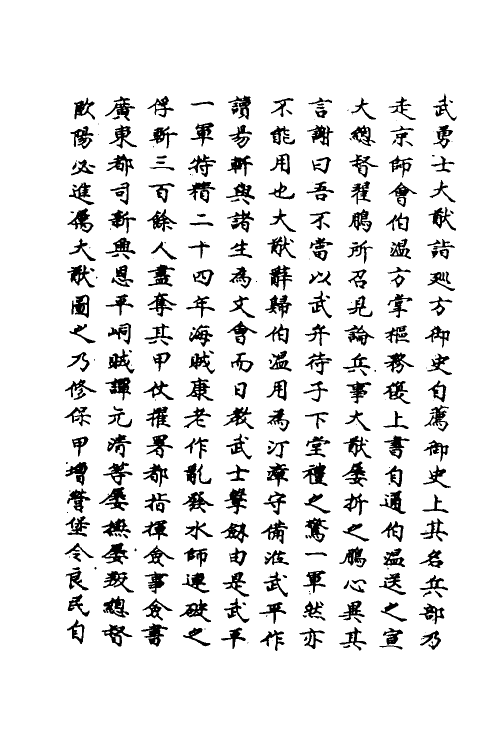 武勇士大猷詣廵方御史自薦御史上其名兵部乃
走京師會伯温方掌樞務復上書自通伯温送之宣
大總督翟鵬所召見論兵事大猷屡折之鵬心異其
言謝曰吾不當以武弁待子下堂禮之驚一軍然亦
不能用也大猷辭歸伯溫用為汀漳守備涖武平作
讀易軒與諸生為文會而日教武士擊劔由是武平
一軍特精二十四年海賊康老作亂發水師連破之
俘斬三百餘人盡奪其甲仗擢署都指揮僉事僉書
廣東都司新興恩平峒賊譚元清等屡撫屡叛總督
歐陽必進屬大猷圖之乃修保甲增營堡令良民自